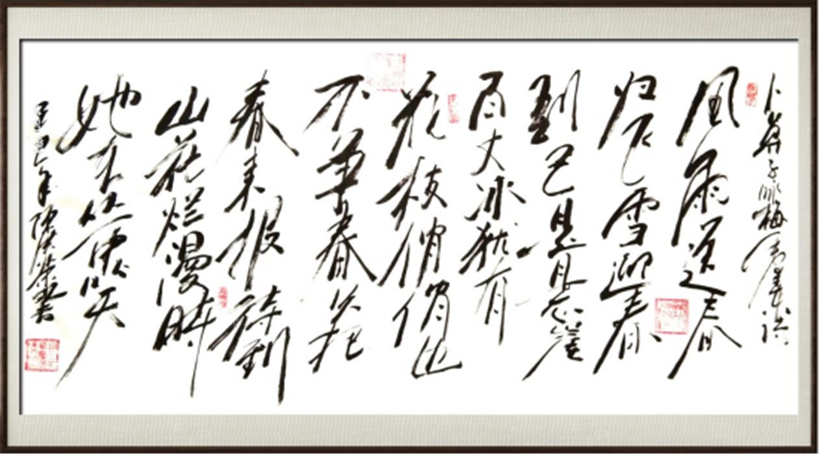 卜算子咏梅
风雨送春
归飞雪迎春
到已是悬崖
百丈冰犹有
花枝俏俏也
不争春只把
春来报待到
山花烂漫时
她在丛中笑
年书